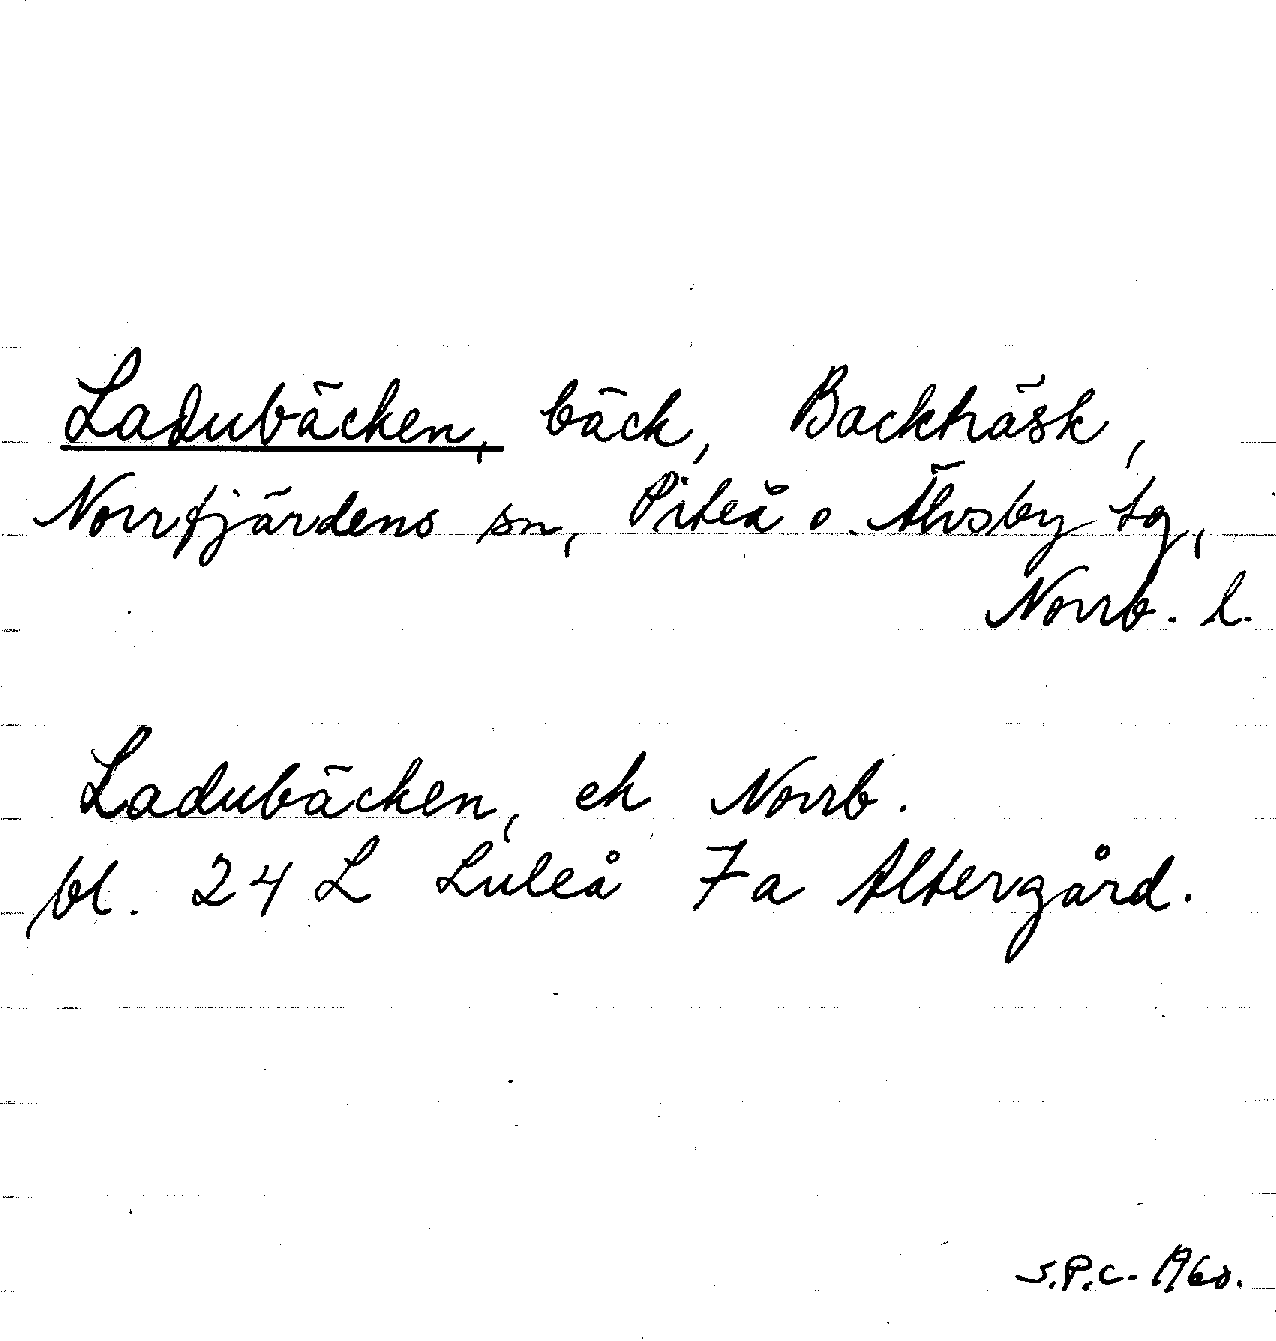 Ladubäcken, bäck, Backträsk,
Norrfjärdens sn, Piteå o. Älvsby tg,
Norrb. l.
Ladubäcken, ek Norrb.
bl. 24 L Luleå 7a Altergård.
S.P.C. 1960.